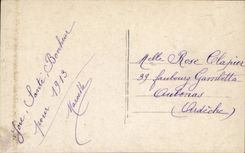 Joie, Santé, Bonheur
pour 1913
Marcelle
Melle Rose Clapier
39 faubourg Gambetta
Aubenas
(Ardèche)